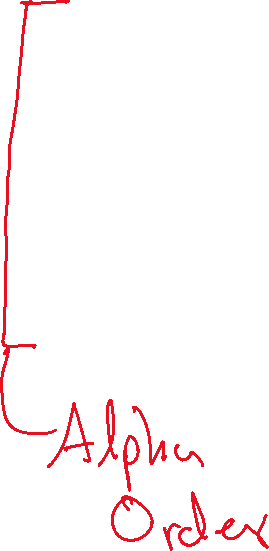 Alpha
Order